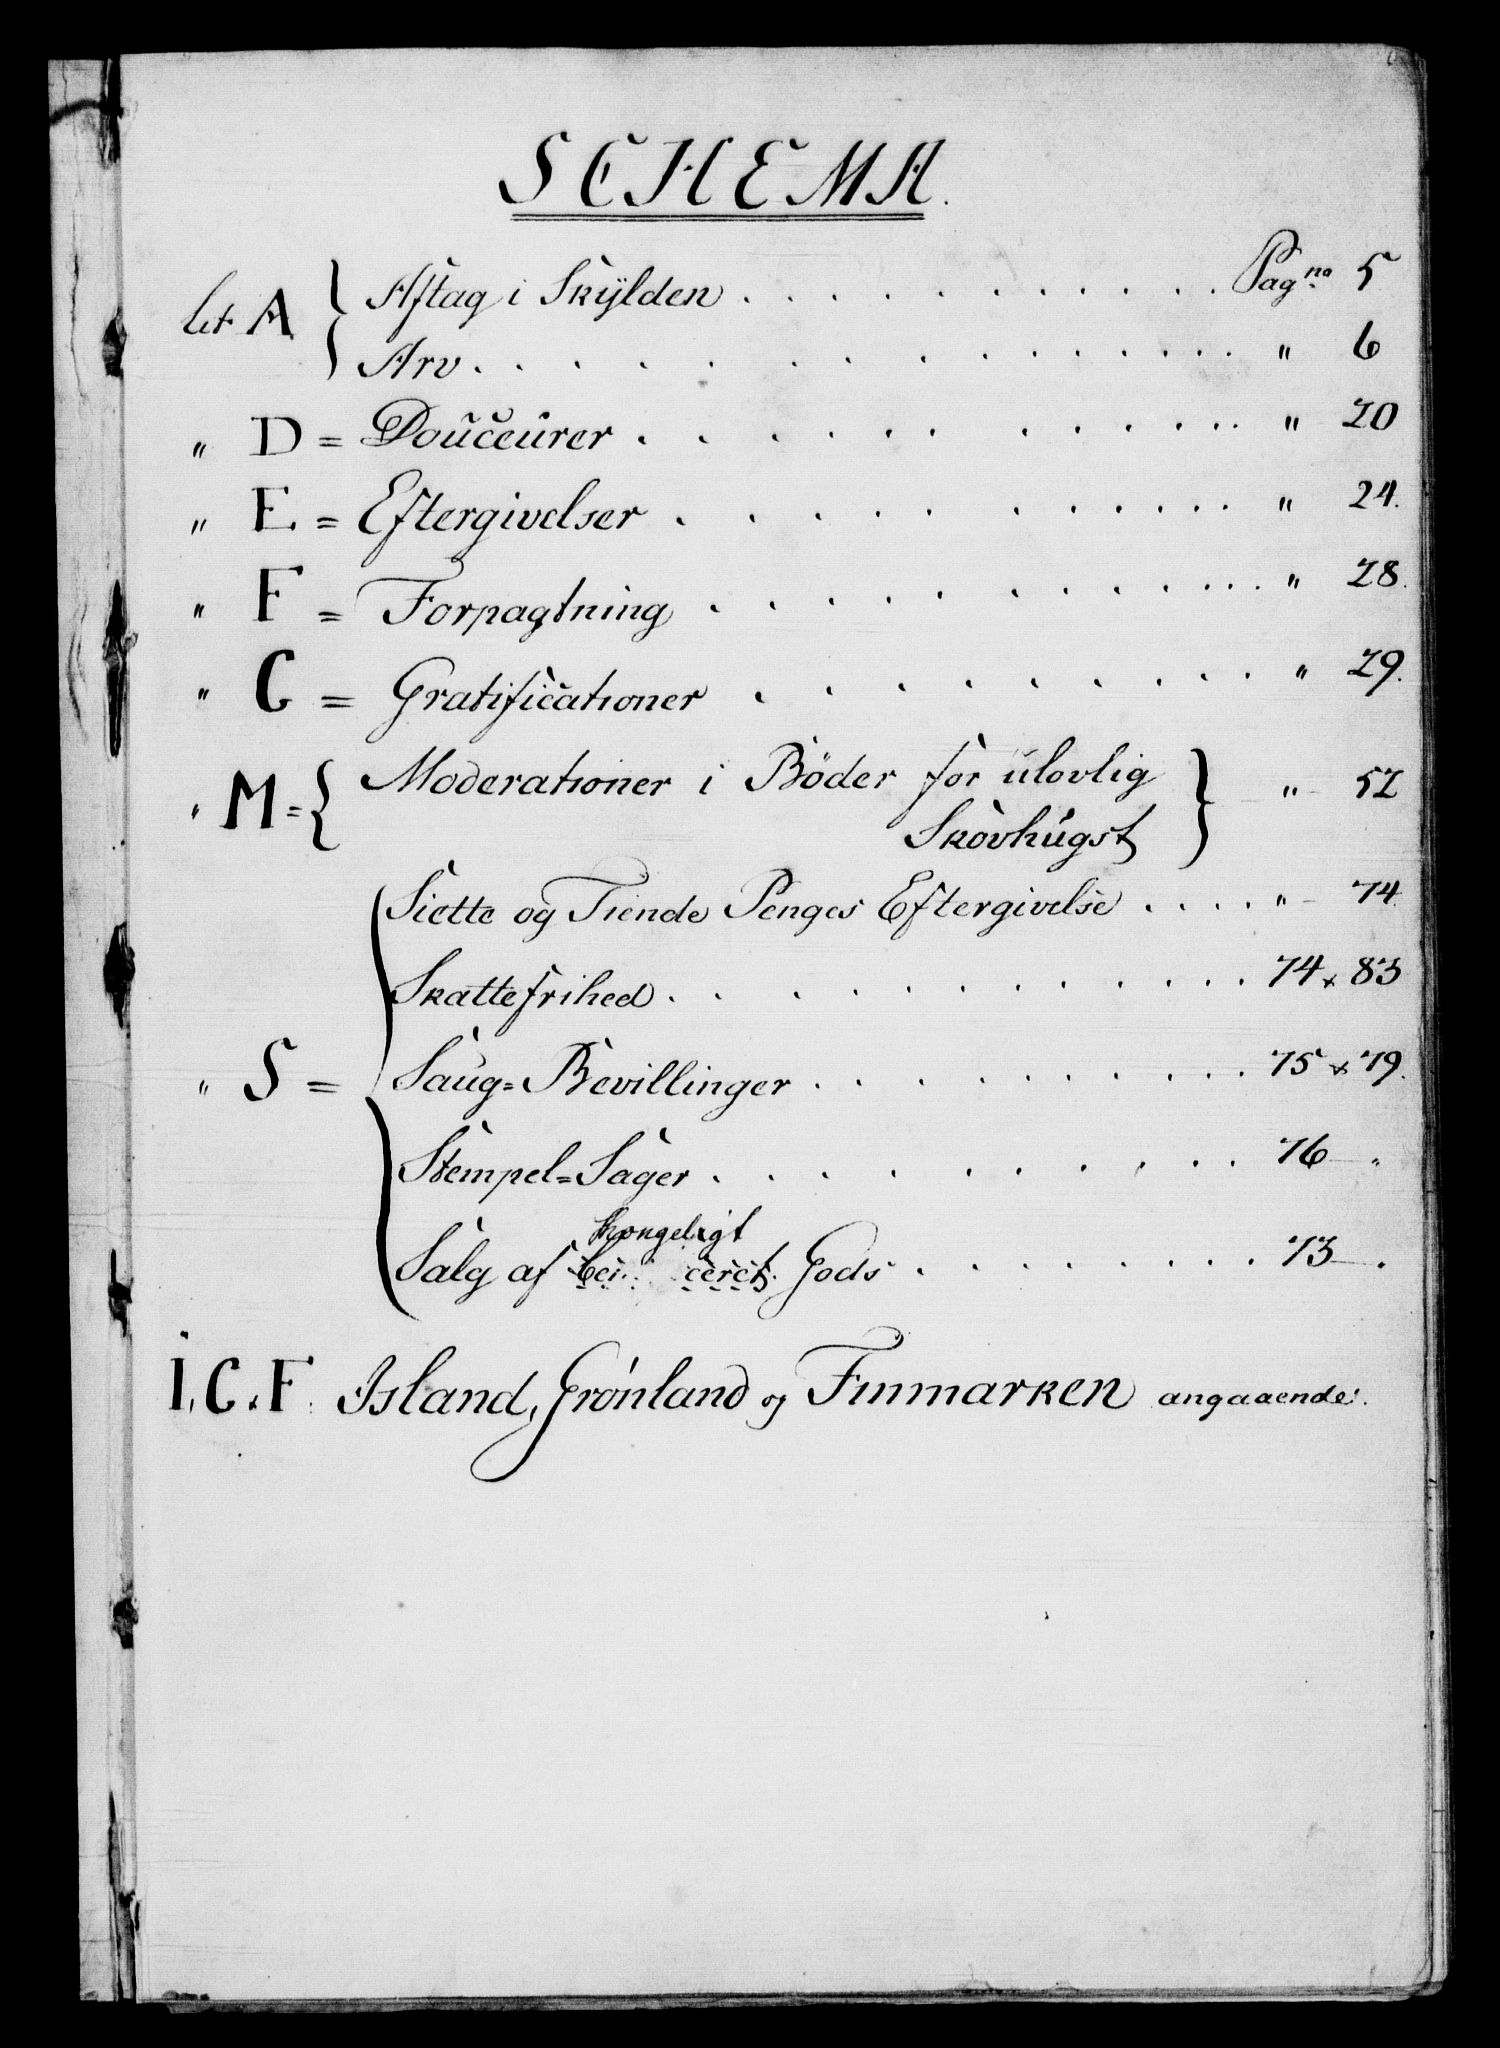 SCHEMA.
Lit. A } Aftag i Skÿlden . . . . . . . . . . Pag no 5
Arv . . . . . . . . . . . . " 6
" D = Douceurer . . . . . . . . . . . " 20
" E = Eftergivelser . . . . . . . . . . " 24.
" F = Forpagtning . . . . . . . . . . . " 28.
" G = Gratificationer . . . . . . . . . . " 29.
" M = { Moderationer i Böder for ulovlig } " 52
Skovhugst
Siette og Tiende Penges Eftergivelse . . . . " 74.
Skattefrihed . . . . . . . . . . . 74 x 83
" S = { Saug=Bevillinger . . . . . . . . . . 75 x 79.
Stempel=Sager . . . . . . . . . . 76 "
kongeligt
Salg af Gods . . . . . . . . . 73 .
I. G. F. Island, Grönland og Finmarken angaaende.